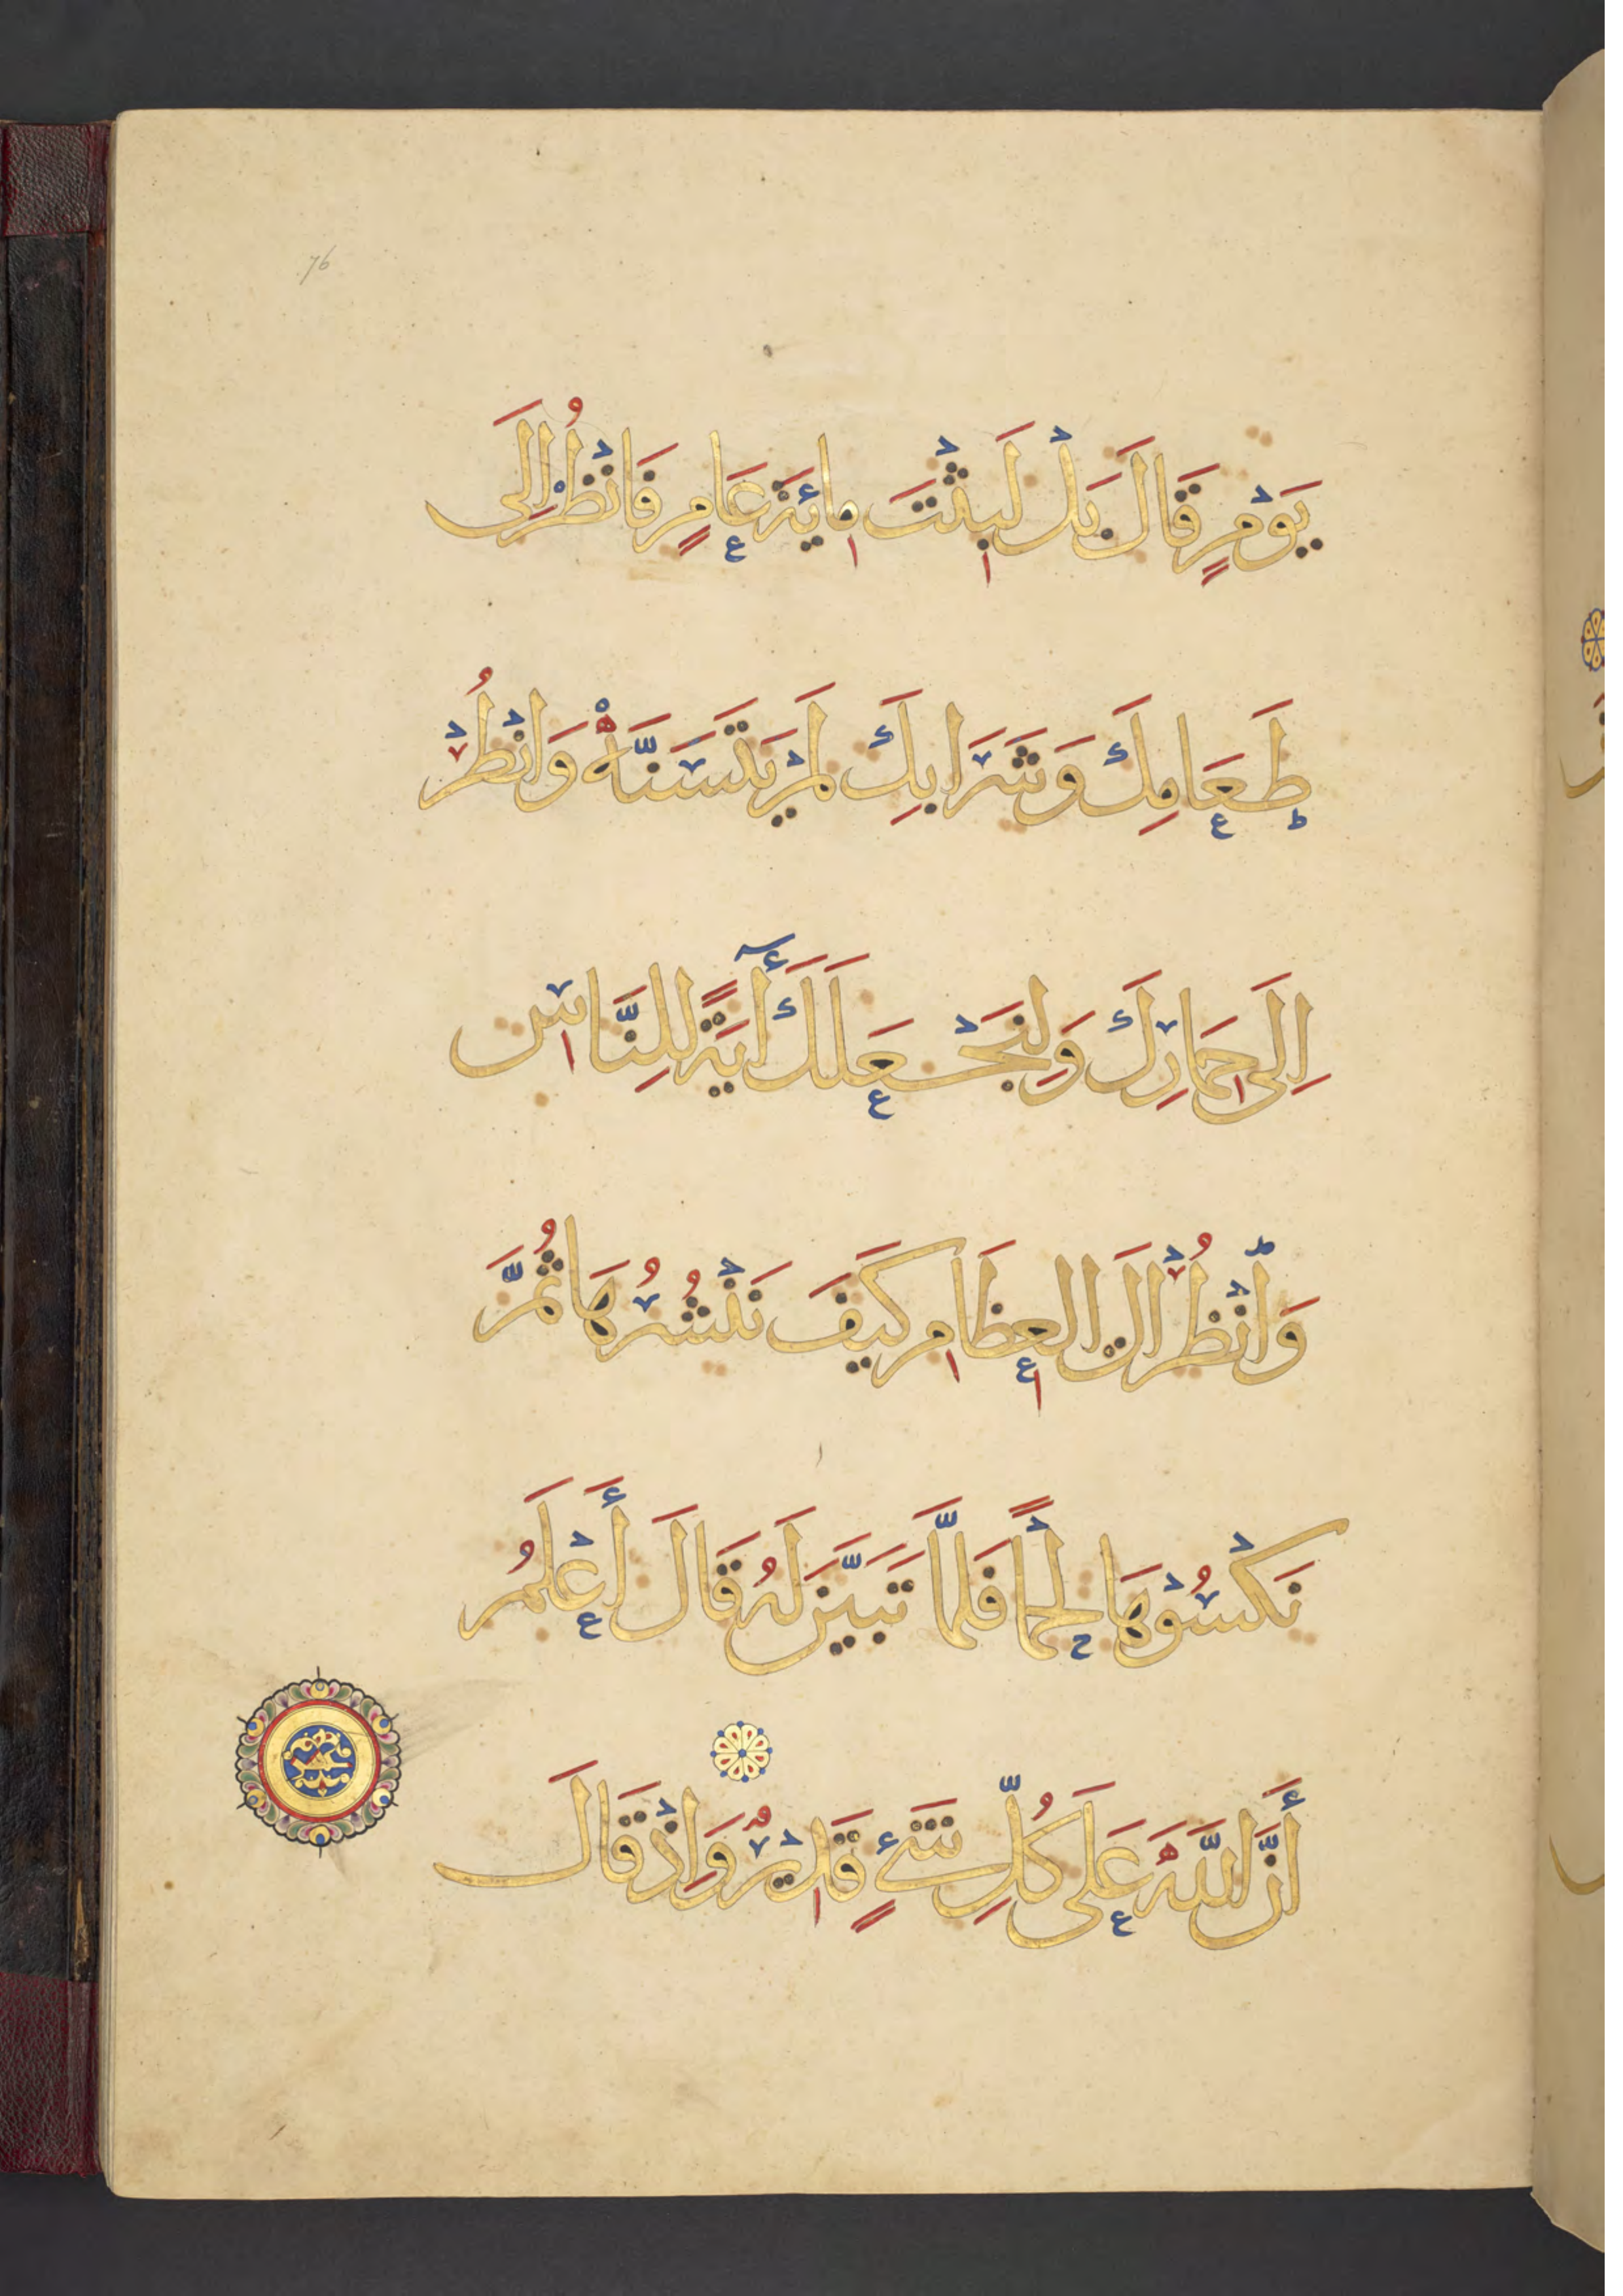 76
يَوْمٍ قَالَ بَلْ لَبِثْتَ مِائَةَ عَامٍ فَانْظُرْ اِلَى
طَعَامِكَ وَشَرَابِكَ لَمْ يَتَسَنَّهْ وَانْظُرْ
اِلَى حِمَارِكَ وَلِنَجْعَلَكَ أٓيَةً لِلنَّاسِ
وَانْظُرْ اِلَى الْعِظَامِ كَيَفَ نَنْشُرُهَا ثُمَّ
نَكْسُوْهَا لَحْمًا فَلَمَّا تَبَيَّنَ لَهُ قَالَ أَعْلَمُ
أَنَّ اللَّهَ عَلَى كُلِّ شَيْءٍ قَدِيْرٌ وَاِذْ قَالَ